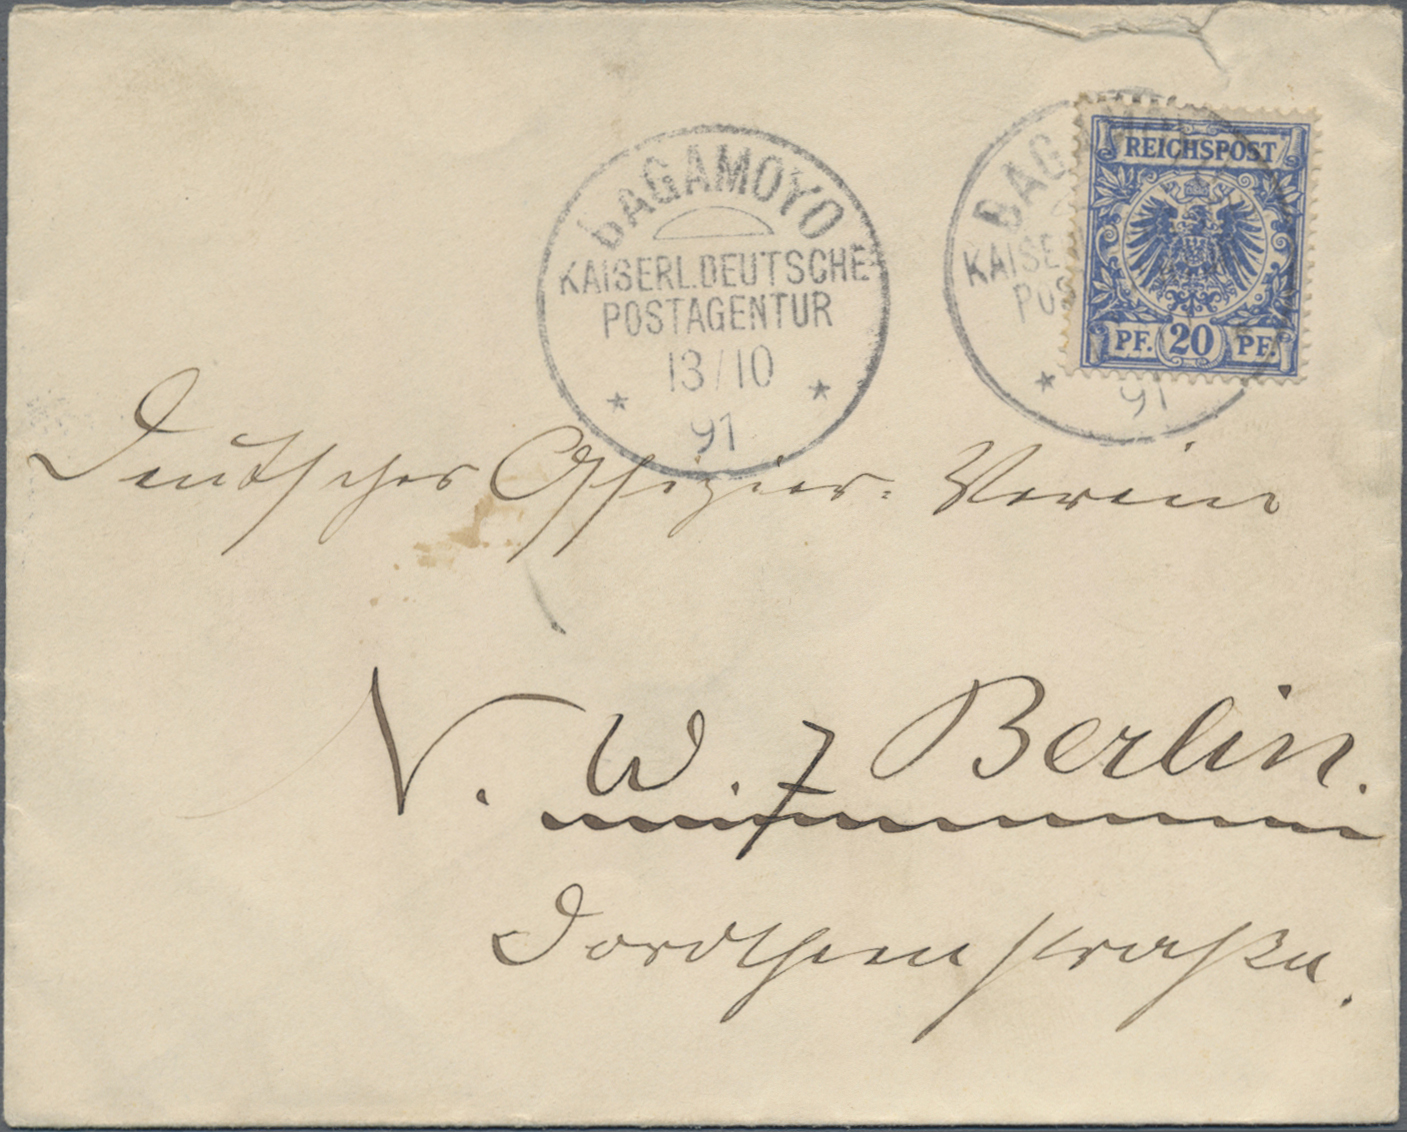 BAGAMOYO
KAISERL.DEUTSCHE
POSTAGENTUR
13/10
91
BAGAMO
KAISE
POS
91
REICHSPOST
PF. 20 PF.
Deutscher Offizier-Verein
N. W. 7 Berlin.
Dorotheenstraße.